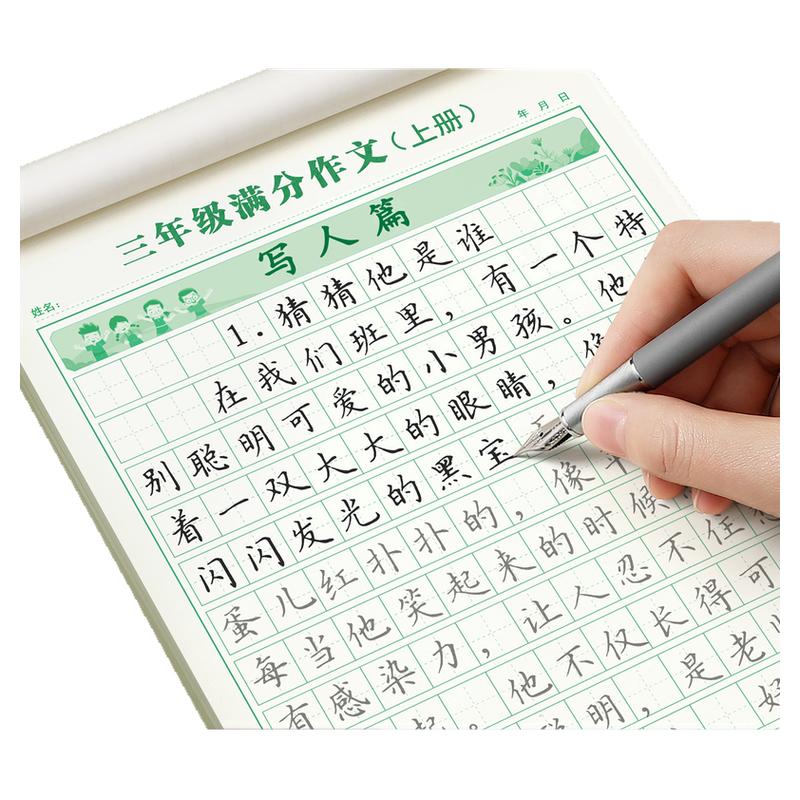 三年级满分作文（上册）
年 月 日
写人篇
姓名：
1.猜猜他是谁
在我们班里，有一个特
别聪明可爱的小男孩。他
着一双大大的眼睛，像
闪闪发光的黑宝
蛋儿红扑扑的，像
每当他笑起来的时候
有感染力，让人忍不住
起。他不仅长得可
聪明，是老
好